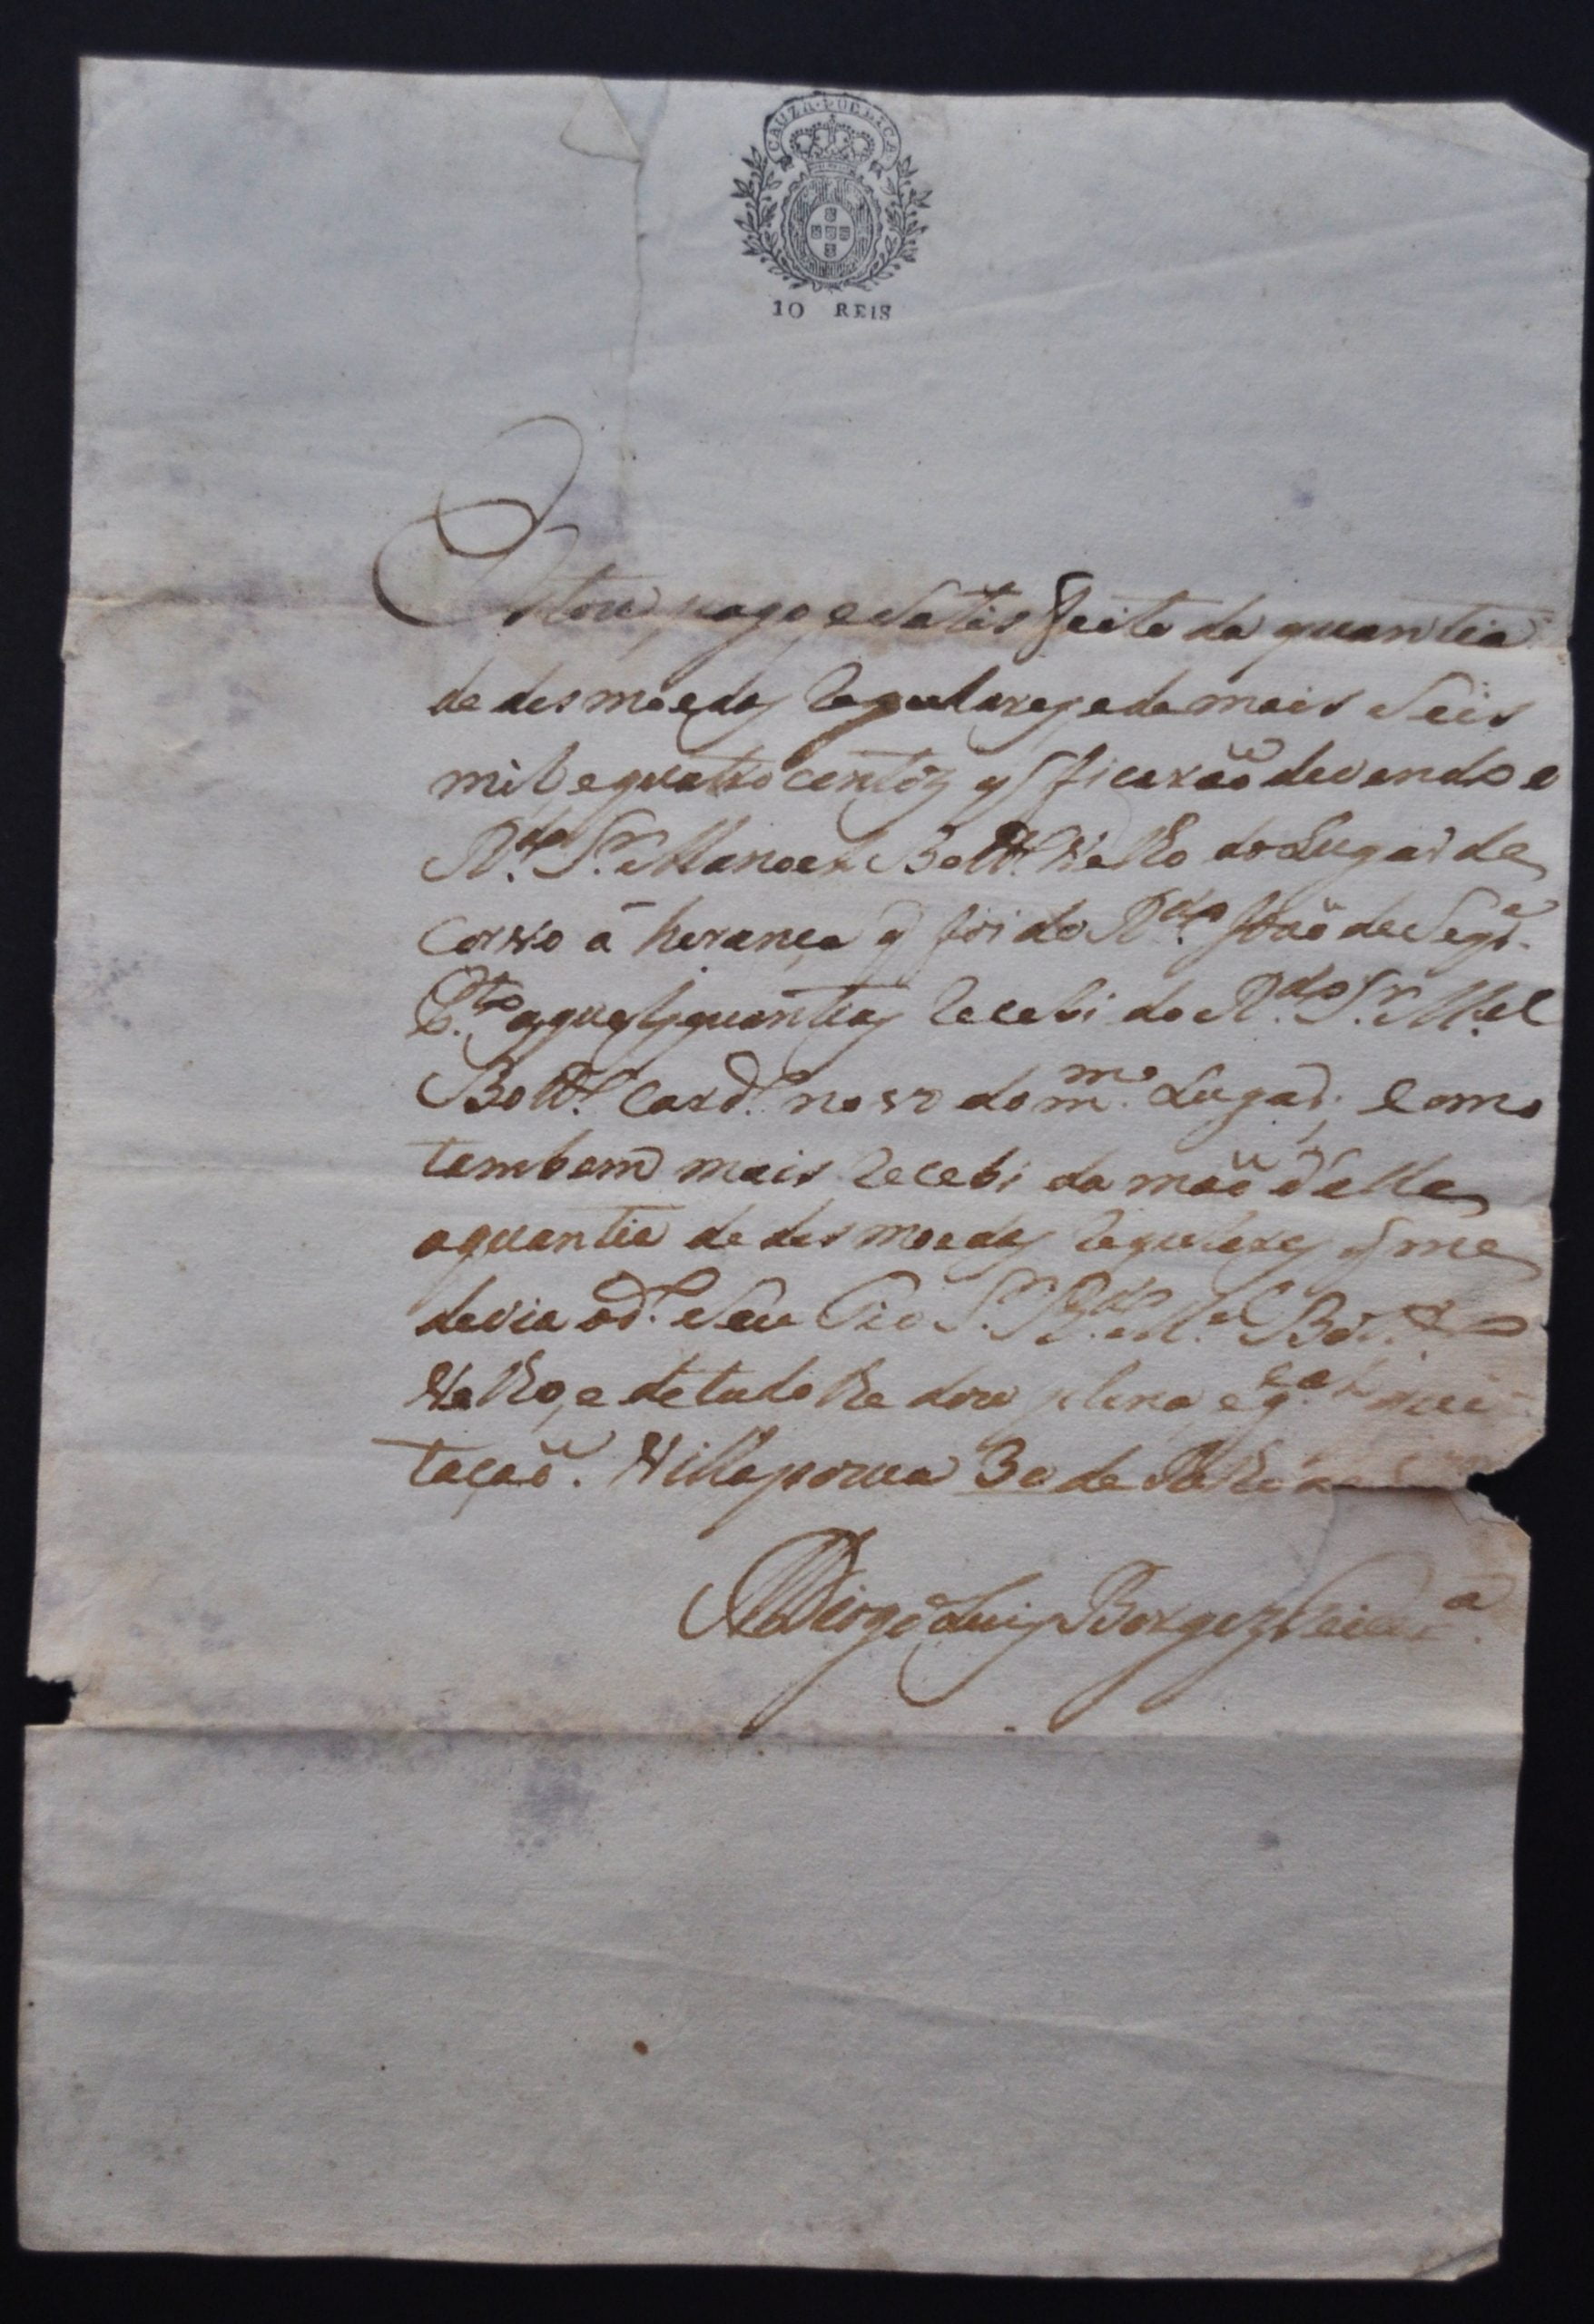 CAUZA PUBLICA
10 REIS
Estou pago e satisfeito da quantia
de des moedas regulares e de mais seis
mil e quatro centoz q̃ ficaraõ devendo o
R.do S.r Manoel Bott.º Velho do Lugar de
Corvo á herança q̃ foi do R.do Joaõ de Seq.ra
quantias recebi do R.do S.r M.el
Bott.º Card.º novo do m.mo Lugar; Como
tambem mais recebi da maõ d'elle
a quantia de des moedas regulares q̃ me
devia o d.º seu Tio S.r R.do M.el Bot.º
Velho, e de tudo lhe dou plena, e g.al qui
taçaõ. Villapouca 30 de
Diogo Luiz Borgez